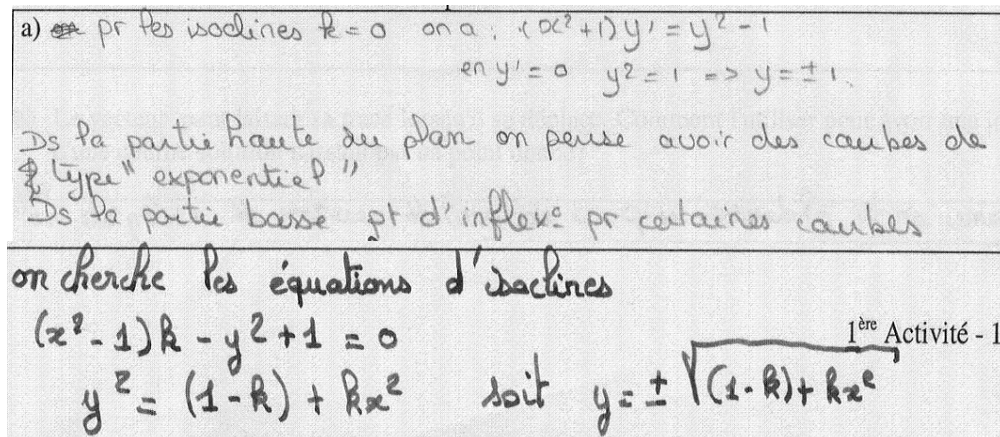 a) pr les isoclines k = 0 on a : (x²+1)y' = y² - 1
en y' = 0 y² = 1 => y = ± 1.
Ds la partie haute du plan on pense avoir des courbes de
type "exponentiel"
Ds la partie basse pt d'inflex° pr certaines courbes
on cherche les équations d'isoclines
(x² - 1)k - y² + 1 = 0
1ère Activité - 1
y² = (1 - k) + kx² soit y = ± √(1-k) + kx²